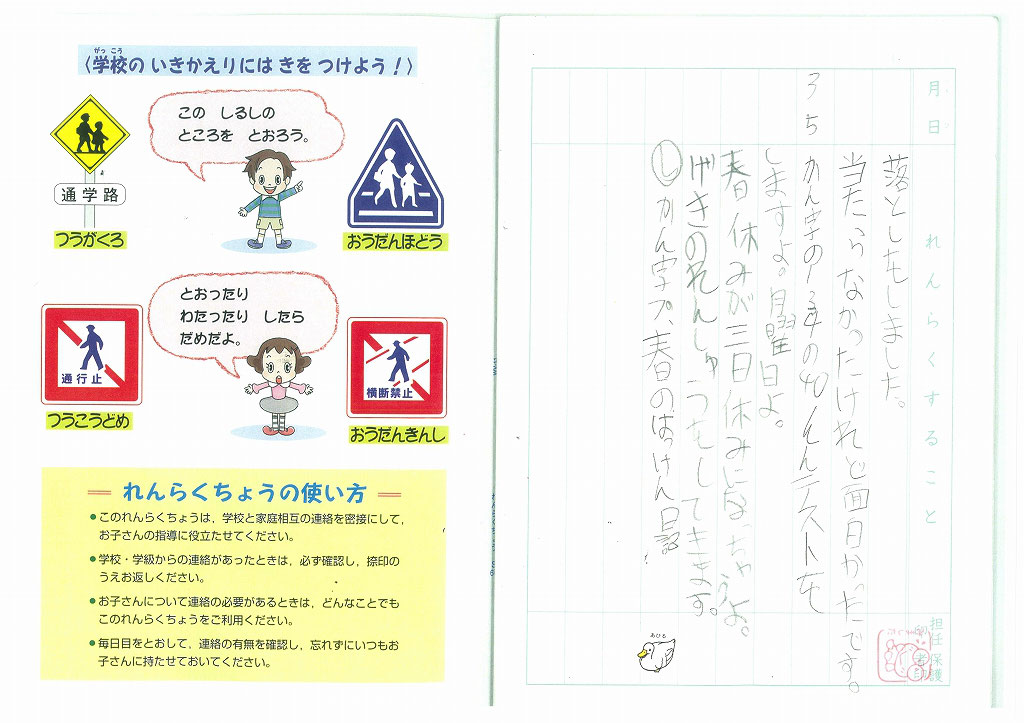 〈学校の いきかえりには きを つけよう！〉
がっ こう
この しるしの
ところを とおろう。
通学路
つうがくろ
おうだんほどう
とおったり
わたったり したら
だめだよ。
通行止
つうこうどめ
横断禁止
おうだんきんし
れんらくちょうの使い方
●このれんらくちょうは，学校と家庭相互の連絡を密接にして，
お子さんの指導に役立たせてください。
●学校・学級からの連絡があったときは，必ず確認し，捺印の
うえお返しください。
●お子さんについて連絡の必要があるときは，どんなことでも
このれんらくちょうをご利用ください。
●毎日目をとおして，連絡の有無を確認し，忘れずにいつもお
子さんに持たせておいてください。
月 日
れんらくすること
担任
保護者印
落としもしました。
当たらなかったけれど面白かったです。
3 5
かん字の1学の40もんテストを
しますよ。月曜日よ。
春休みが三日休みになっちゃうよ。
げきのれんしゅうをしてきます。
し かん字プ、春のはっけん日記
あひる